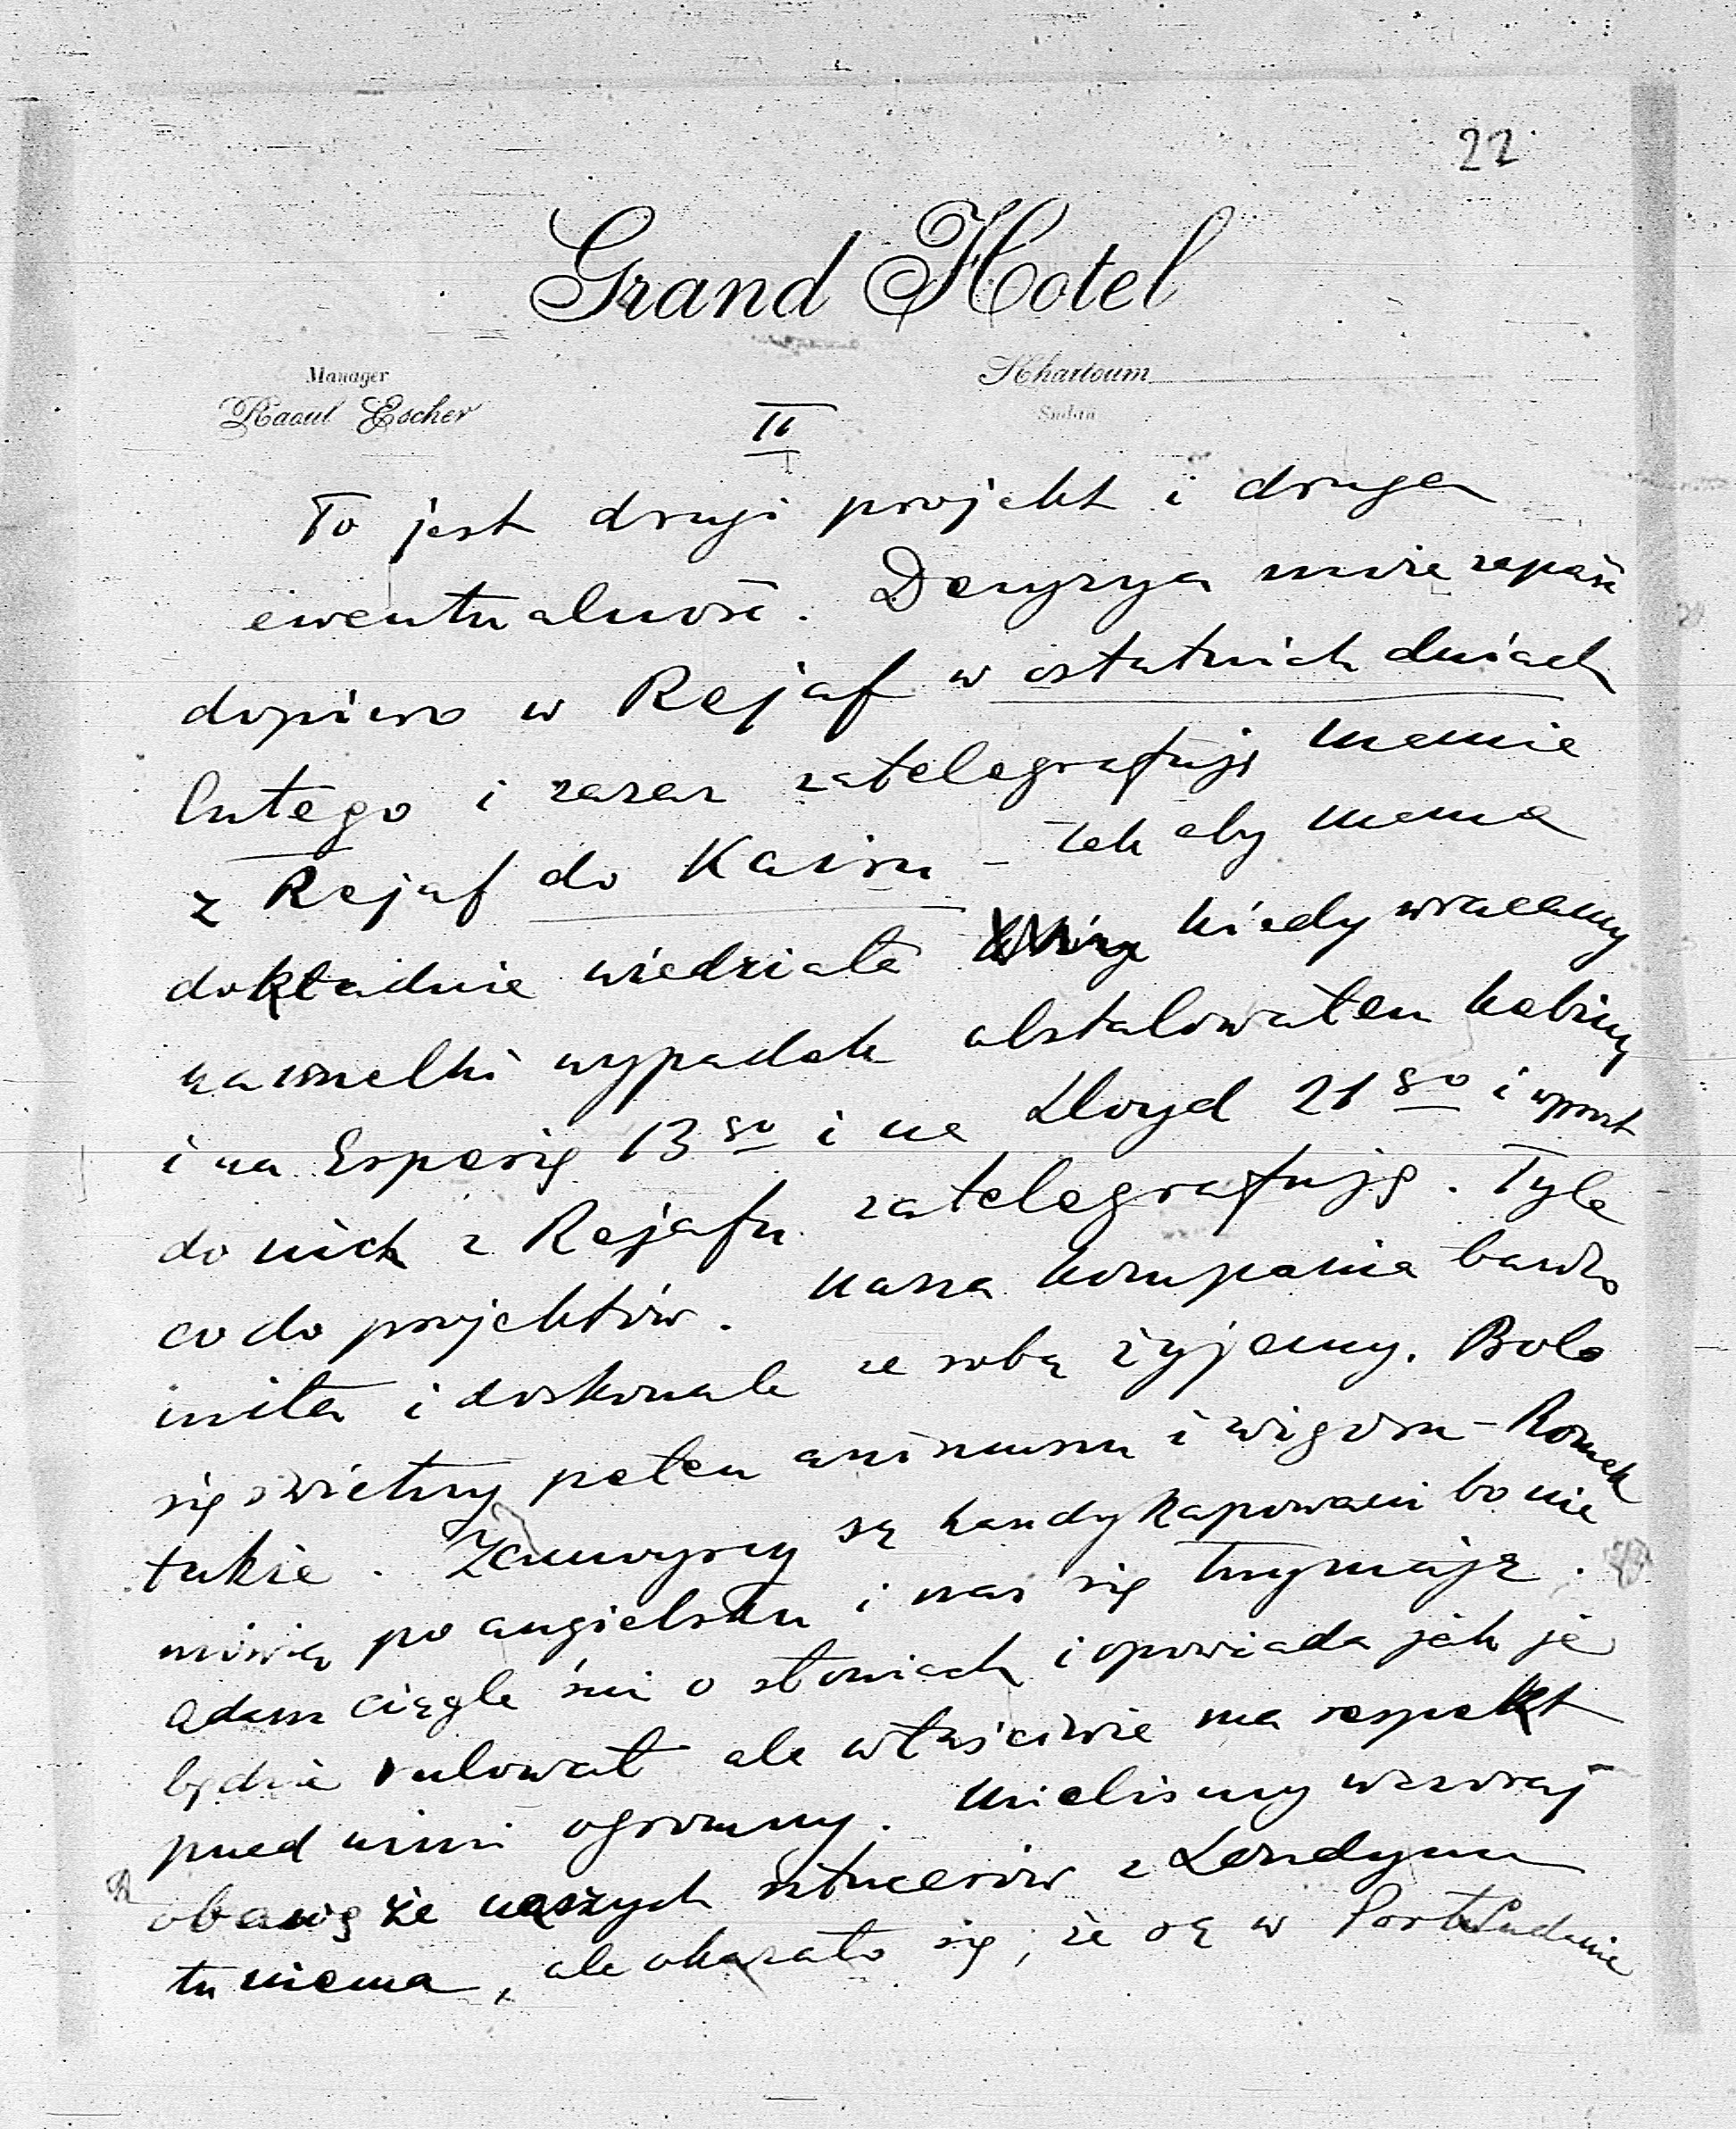 22
Grand Hotel
Manager
Raoul Escher
Khartoum
Sudan
II
To jest drugi projekt i druga
ewentualność. Decyzya może zapaść
dopiero w Rejaf w ostatnich dniach
lutego i zaraz zatelegrafuję mamie
z Rejaf do Kairu - tak aby mama
dokładnie wiedziała kiedy wracamy
na wszelki wypadek obstalowałem kabiny
i na Esperię 13go i na Lloyd 21go i wprost
do nich z Rejafu zatelegrafuję. Tyle
co do projektów. Nasza kompania bardzo
miła i doskonale ze sobą żyjemy. Bolo
się świetny pełen animuszu i wigoru - Romek
także. Zamoyscy są handykapowani bo nie
mówią po angielsku i nas się trzymają.
Adam ciągle śni o słoniach i opowiada jak je
będzie rulował ale właściwie ma respekt
przed nimi ogromny. Mieliśmy wczoraj
obawę że naszych sztucerów z Londynu
tu niema, ale okazało się, że są w Port Sudanie